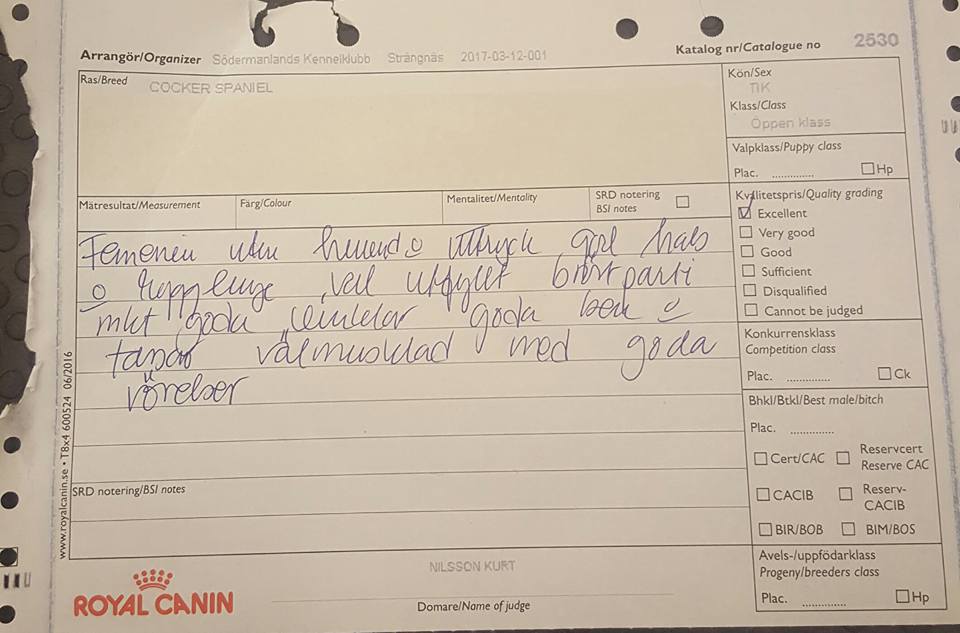 Arrangör/Organizer Södermanlands Kennelklubb Strängnäs 2017-03-12-001
Katalog nr/Catalogue no 2530
Ras/Breed COCKER SPANIEL
Kön/Sex
TIK
Klass/Class
Öppen klass
Valpklass/Puppy class
Plac. .............. Hp
Mätresultat/Measurement Färg/Colour Mentalitet/Mentality SRD notering
BSI notes
Kvalitetspris/Quality grading
Excellent
Very good
Good
Sufficient
Disqualified
Cannot be judged
huvud o uttryck god hals
o rygglinje väl utfyllt bröstparti
mkt goda vinklar goda ben o
tassar välmusklad med goda
rörelser
Konkurrensklass
Competition class
Plac. .............. Ck
Bhkl/Btkl/Best male/bitch
Plac. ..............
Cert/CAC Reservcert
Reserve CAC
CACIB Reserv-
CACIB
BIR/BOB BIM/BOS
SRD notering/BSI notes
Avels-/uppfödarklass
Progeny/breeders class
Plac. .............. Hp
NILSSON KURT
Domare/Name of judge
ROYAL CANIN
www.royalcanin.se • T8x4 600524 06/2016